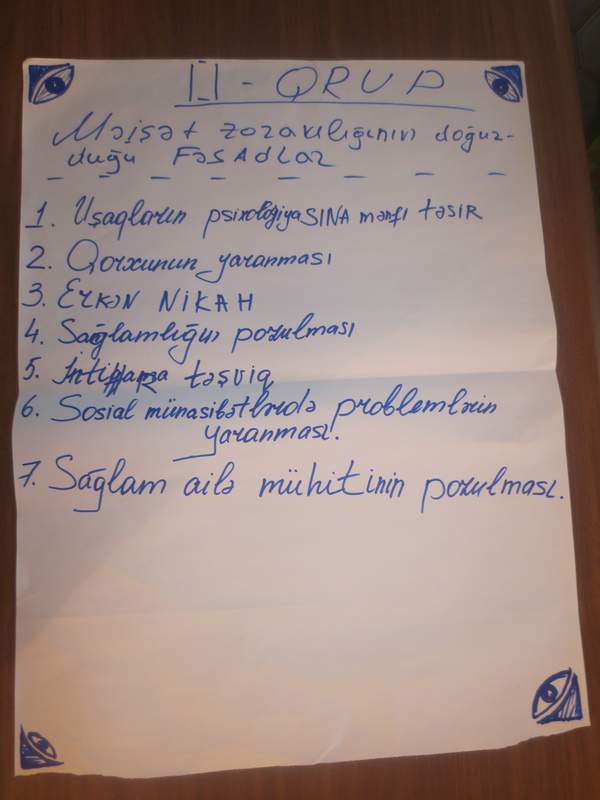 II - QRUP
Məişət zorakılığının doğur-
duğu FƏSADLAR
1. Uşaqların psixologiyaSINA mənfi təSIR
2. Qorxunun yaranması
3. ERKƏN NİKAH
4. Sağlamlığın pozulması
5. İntihara təşviq
6. Sosial münasibətlərdə problemlərin
yaranması.
7. Sağlam ailə mühitinin pozulması.